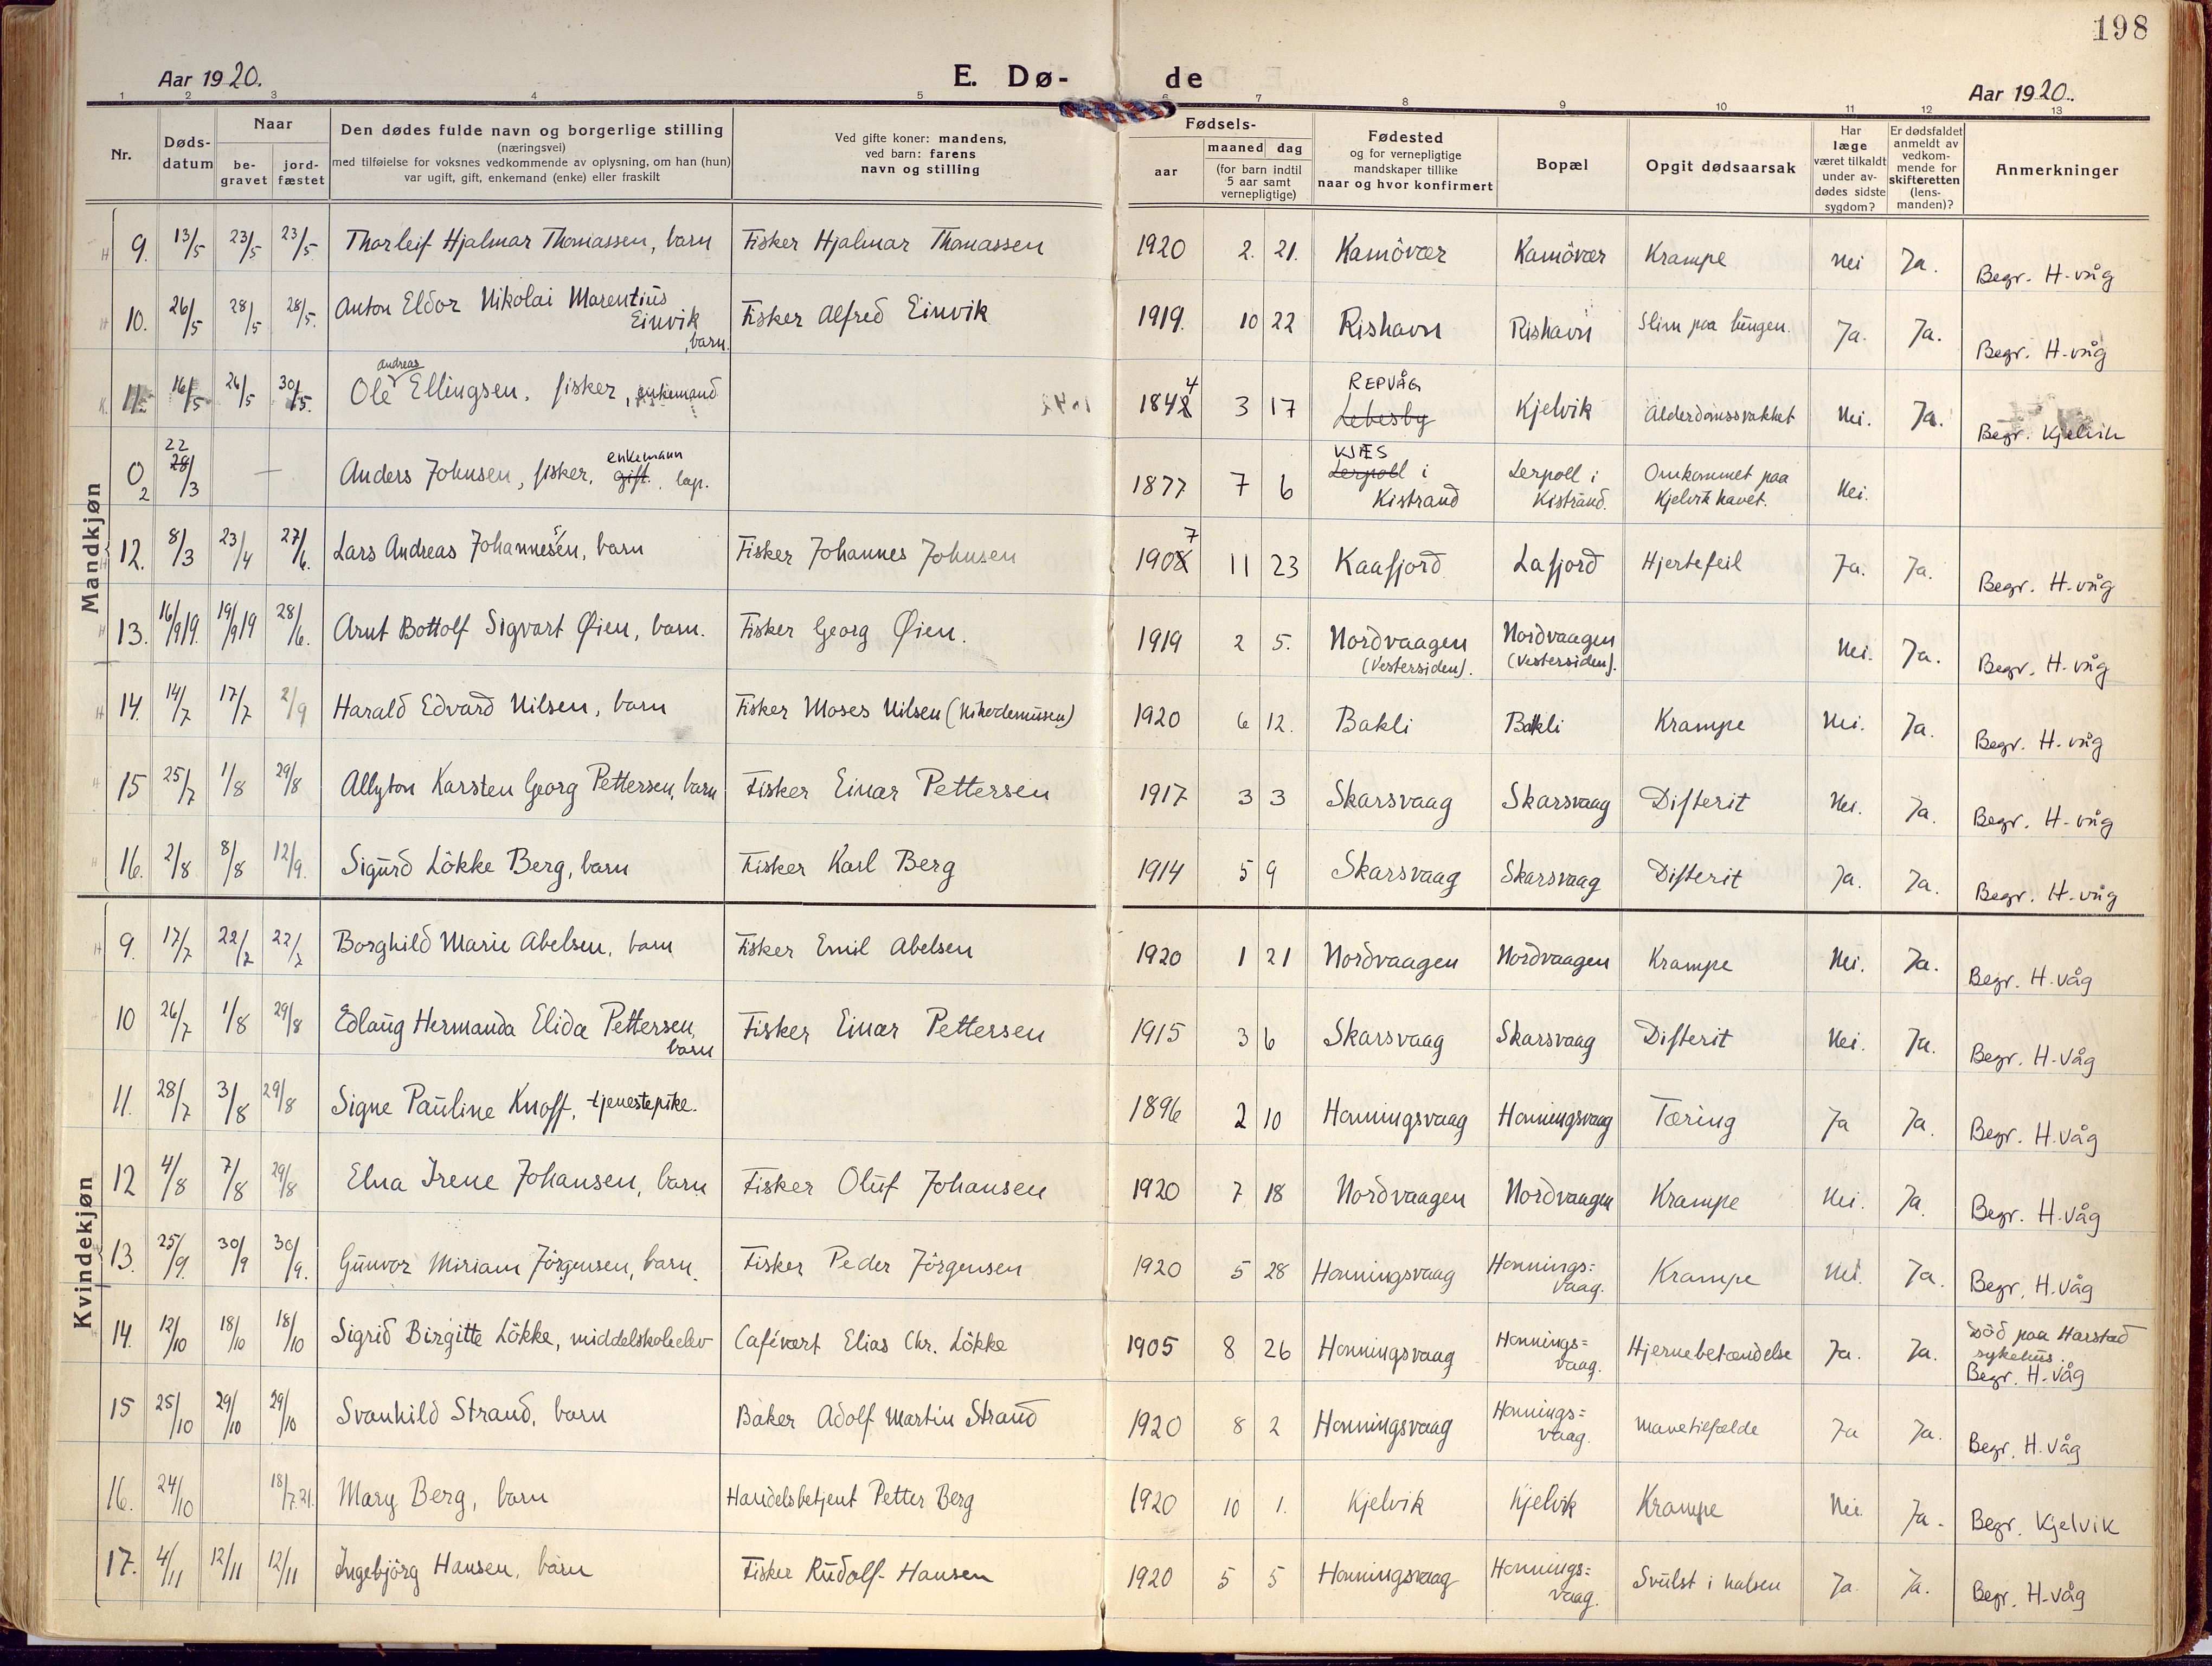 198
Aar 1920.
E. Dø-
de
Aar 1920.
1 2 3 4 5 6 7 8 9 10 11 12 13
Nr.
Døds-
datum
Naar
be-
gravet
jord-
fæstet
Den dødes fulde navn og borgerlige stilling
(næringsvei)
med tilføielse for voksnes vedkommende av oplysning, om han (hun)
var ugift, gift, enkemand (enke) eller fraskilt
Ved gifte koner: mandens,
ved barn: farens
navn og stilling
Fødsels-
aar
maaned dag
(for barn indtil
5 aar samt
vernepligtige)
Fødested
og for vernepligtige
mandskaper tillike
naar og hvor konfirmert
Bopæl
Opgit dødsaarsak
Har
læge
været tilkaldt
under av-
dødes sidste
sygdom?
Er dødsfaldet
anmeldt av
vedkom-
mende for
skifteretten
(lens-
manden)?
Anmerkninger
Mandkjøn
9. 13/5 23/5 23/5. Thorleif Hjalmar Thomassen, barn Fisker Hjalmar Thomassen 1920 2. 21. Kamöver Kamöver Krampe Nei Ja. Begr. H-våg
10. 26/5 28/5 28/5. Anton Eldor Nikolai Marentius
Einvik
, barn. Fisker Alfred Einvik 1919. 10 22 Rishavn Rishavn Slim paa lungen. Ja. Ja. Begr. H-våg
andreas 4 REPVÅG
11. 16/5 26/5 30/5. Ole Ellingsen, fisker, enkemand 1848 3 17 Lebesby Kjelvik Alderdomssvakhet Nei. Ja. Begr. Kjelvik
22 enkemann KJÆS
0 2 28/3 — Anders Johnsen, fisker, gift. , lap. 1877 7 6 Lerpoll i
Kistrand Lerpoll i
Kistrand. Omkommet paa
Kjelvik havet. Nei.
7
12. 8/3 23/4 27/6. Lars Andreas Johannesen, barn Fisker Johannes Johnsen 1908 11 23 Kaafjord Lafjord Hjertefeil Ja. Ja. Begr. H-våg
13. 16/9 19. 19/9 19 28/6. Arnt Bottolf Sigvart Øien, barn. Fisker Georg Øien. 1919 2 5. Nordvaagen
(Vestersiden). Nordvaagen
(Vestersiden). Nei. Ja. Begr. H-våg
14. 14/7 17/7 2/9 Harald Edvard Nilsen, barn Fisker Moses Nilsen (Nikodemüssen) 1920 6 12. Bakli Bakli Krampe Nei. Ja. Begr. H-våg
15 25/7 1/8 29/8 Allyton Karsten Georg Pettersen, barn Fisker Einar Pettersen 1917 3 3 Skarsvaag Skarsvaag Difterit Nei. Ja. Begr. H-våg
16. 2/8 8/8 12/9. Sigurd Lökke Berg, barn Fisker Karl Berg 1914 5 9 Skarsvaag Skarsvaag Difterit Ja. Ja. Begr. H-våg
Kvindekjøn
9. 17/7 22/7 22/7 Borghild Marie Abelsen, barn Fisker Emil Abelsen 1920 1 21 Nordvaagen Nordvaagen Krampe Nei. Ja. Begr. H.våg
10 26/7 1/8 29/8 Edlaug Hermanda Elida Pettersen,
barn Fisker Einar Pettersen 1915 3 6 Skarsvaag Skarsvaag Difterit Nei. Ja. Begr. H-våg
11. 28/7 3/8 29/8 Signe Pauline Knoff, tjenestepike. 1896 2 10 Honningsvaag Honningsvaag Tæring Ja Ja. Begr. H.våg
12 4/8 7/8 29/8 Elna Irene Johansen, barn Fisker Oluf Johansen 1920 7 18 Nordvaagen Nordvaagen Krampe Nei. Ja. Begr. H.våg
13. 25/9. 30/9 30/9. Gunvor Miriam Jörgensen, barn. Fisker Peder Jörgensen 1920 5 28 Honningsvaag Honnings=
vaag. Krampe Nei. Ja. Begr. H.våg
14. 12/10 18/10 18/10 Sigrid Birgitte Lökke, middelskoleelev Cafévært Elias Chr. Lökke 1905 8 26 Honningsvaag Honnings=
vaag. Hjernebetændelse Ja. Ja. Död paa Harstad
sykehus.
Begr. H-våg
15 25/10 29/10 29/10 Svanhild Strand, barn Baker Adolf Martin Strand 1920 8 2 Honningsvaag Honnings=
vaag. Mavetilfælde Ja Ja. Begr. H.våg
16. 24/10 18/7.21. Mary Berg, barn Handelsbetjent Petter Berg 1920 10 1. Kjelvik Kjelvik Krampe Nei. Ja. Begr. Kjelvik
17. 4/11 12/11 12/11 Ingebjörg Hansen, barn Fisker Rudolf Hansen 1920 5 5 Honningsvaag Honnings=
vaag. Svulst i halsen Ja. Ja. Begr. H-våg